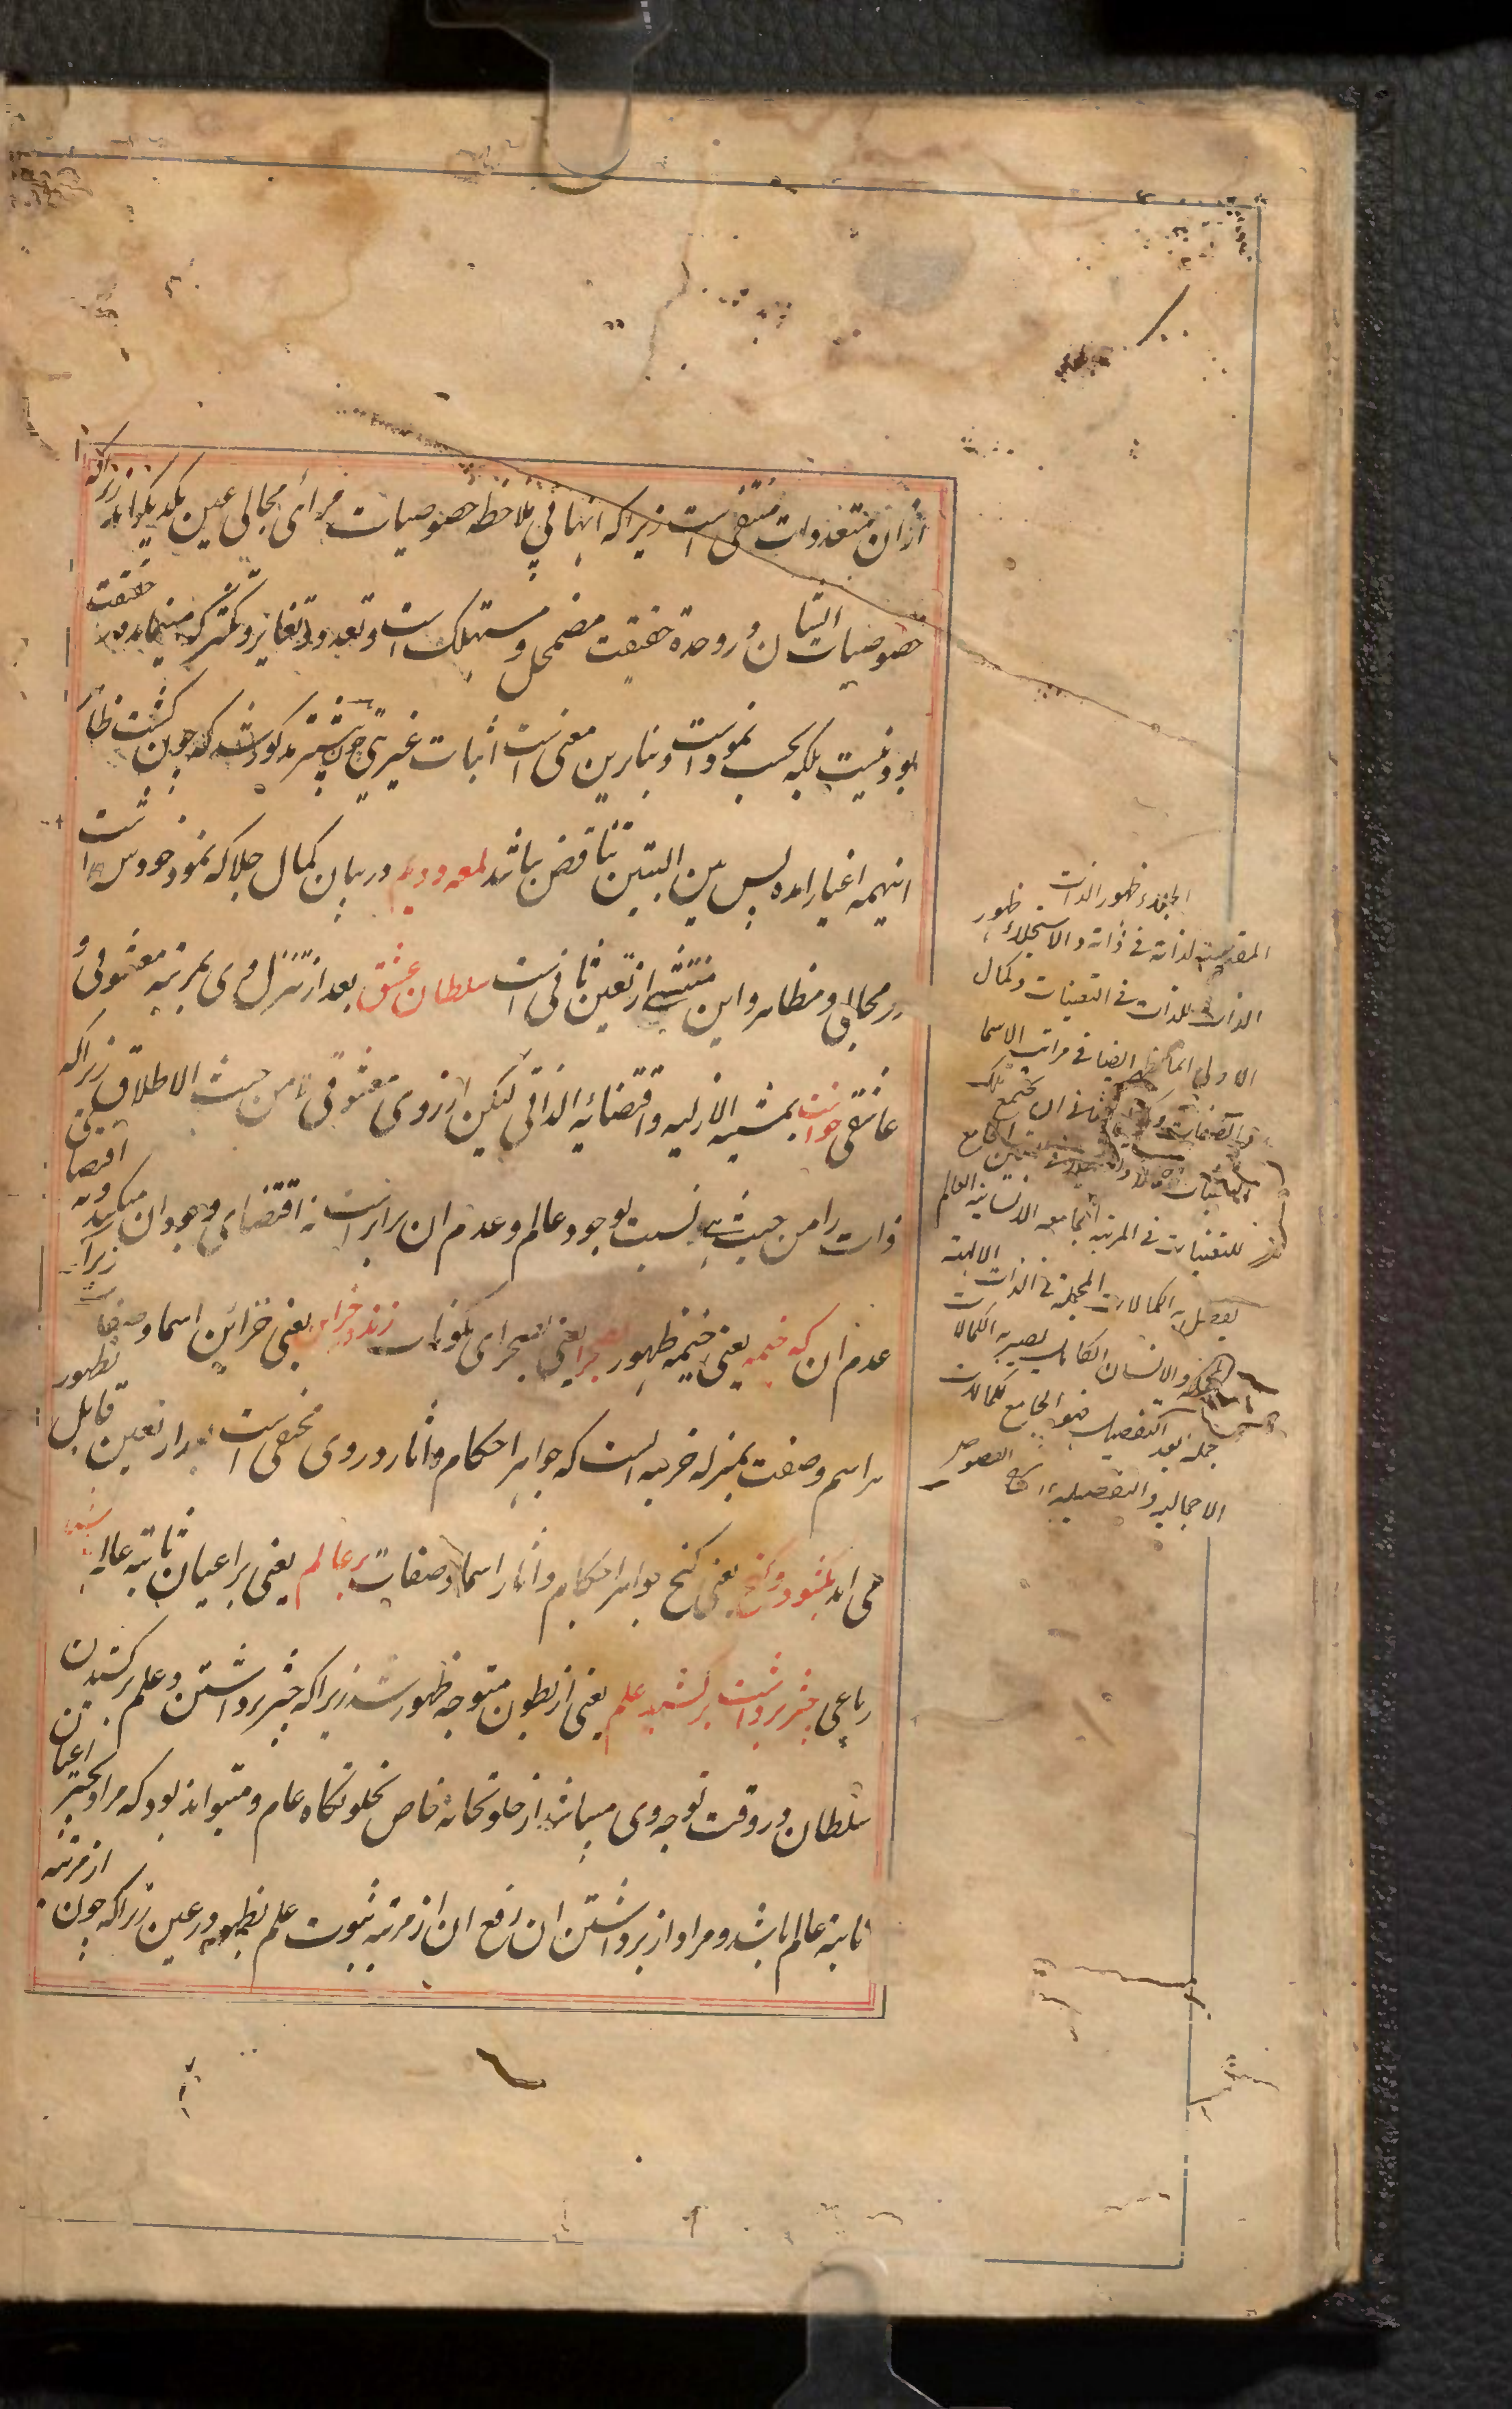 ازان متعددات منتفی است زیرا که اینها بی ملاحظه خصوصیات مرائی مجالی عین یکدیگراند زیرا که
خصوصیات ایشان در وحدة حقیقت مضمحل و مستهلک است و تعدد و تغایر و تکثر که مینماید حقیقت
بود نیست بلکه بحسب نمود است و بنابرین معنی است اثبات غیریتی چون پیشتر مذکور شد که چون کشت ظاهر
اینهمه اغیار امده پس بین البیتین تناقض نباشد لمعه دویم در بیان کمال جلا که نمود خودست
در مجالی و مظاهر و این منتشی از تعین ثانی است سلطان عشق بعد از تنزل وی بمرتبه معشوقی
عاشقی خواست بمشیه الازلیه و اقتضائیه الذاتی لیکن از روی معشوقی نه من حیث الاطلاق زیرا که
ذات را من حیث هی نسبت بوجود عالم و عدم ان برابر است نه اقتضای وجود ان میکند و نه اقتضای
عدم ان که خیمه یعنی خیمه ظهور بصحرا یعنی بصحرای مکونات زند در خزاین یعنی خزائن اسما و صفات زیرا که
هر اسم و صفت بمنزله خزینه است که جواهر احکام و اثار در وی مخفی است بعد از تعین قابل بظهور
می اید بکشود و گنج یعنی گنج جواهر احکام و اثار اسما و صفات بر عالم یعنی بر اعیان ثابته عالم
رباعی چتر برداشت برکشید علم یعنی از بطون متوجه ظهور شد زیرا که چتر برداشتن و علم برکشیدن
سلطان در وقت توجه وی میباشد از خلوتخانه خاص بخلوتگاه عام و میتواند بود که مراد بچتر اعیان
ثابته عالم باشد و مراد از برداشتن ان رفع ان از مرتبه ثبوت علم بظهور در عین زیرا که چون از مرتبه
ظهور الذات
المقدسة لذاته فی ذاته و الاستجلاء ظهور
الذات للذات فی التعینات و کمال
الاولی انما یظهر ایضا فی مراتب الاسما
للتعینات فی المرتبه الجامعه الانسانیه العالم
الکمالات المجملة فی الذات الالهیة
و الانسان الکامل یصیر به الکمالات
جملة بعد التفصیل فهو الجامع للکمالات
الاجمالیه و التفصیلیه